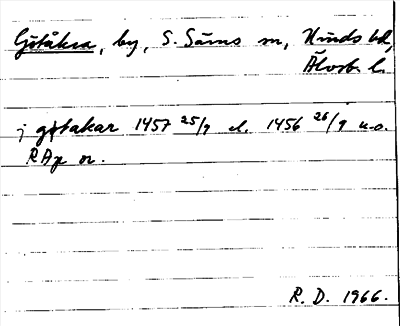 Götåkra, by, S. Särns sn, Kinds hd,
Älvsb. l.
j gøtakar 1457 25/9 el. 1456 26/9 u.o.
RAp or.
R. D. 1966.